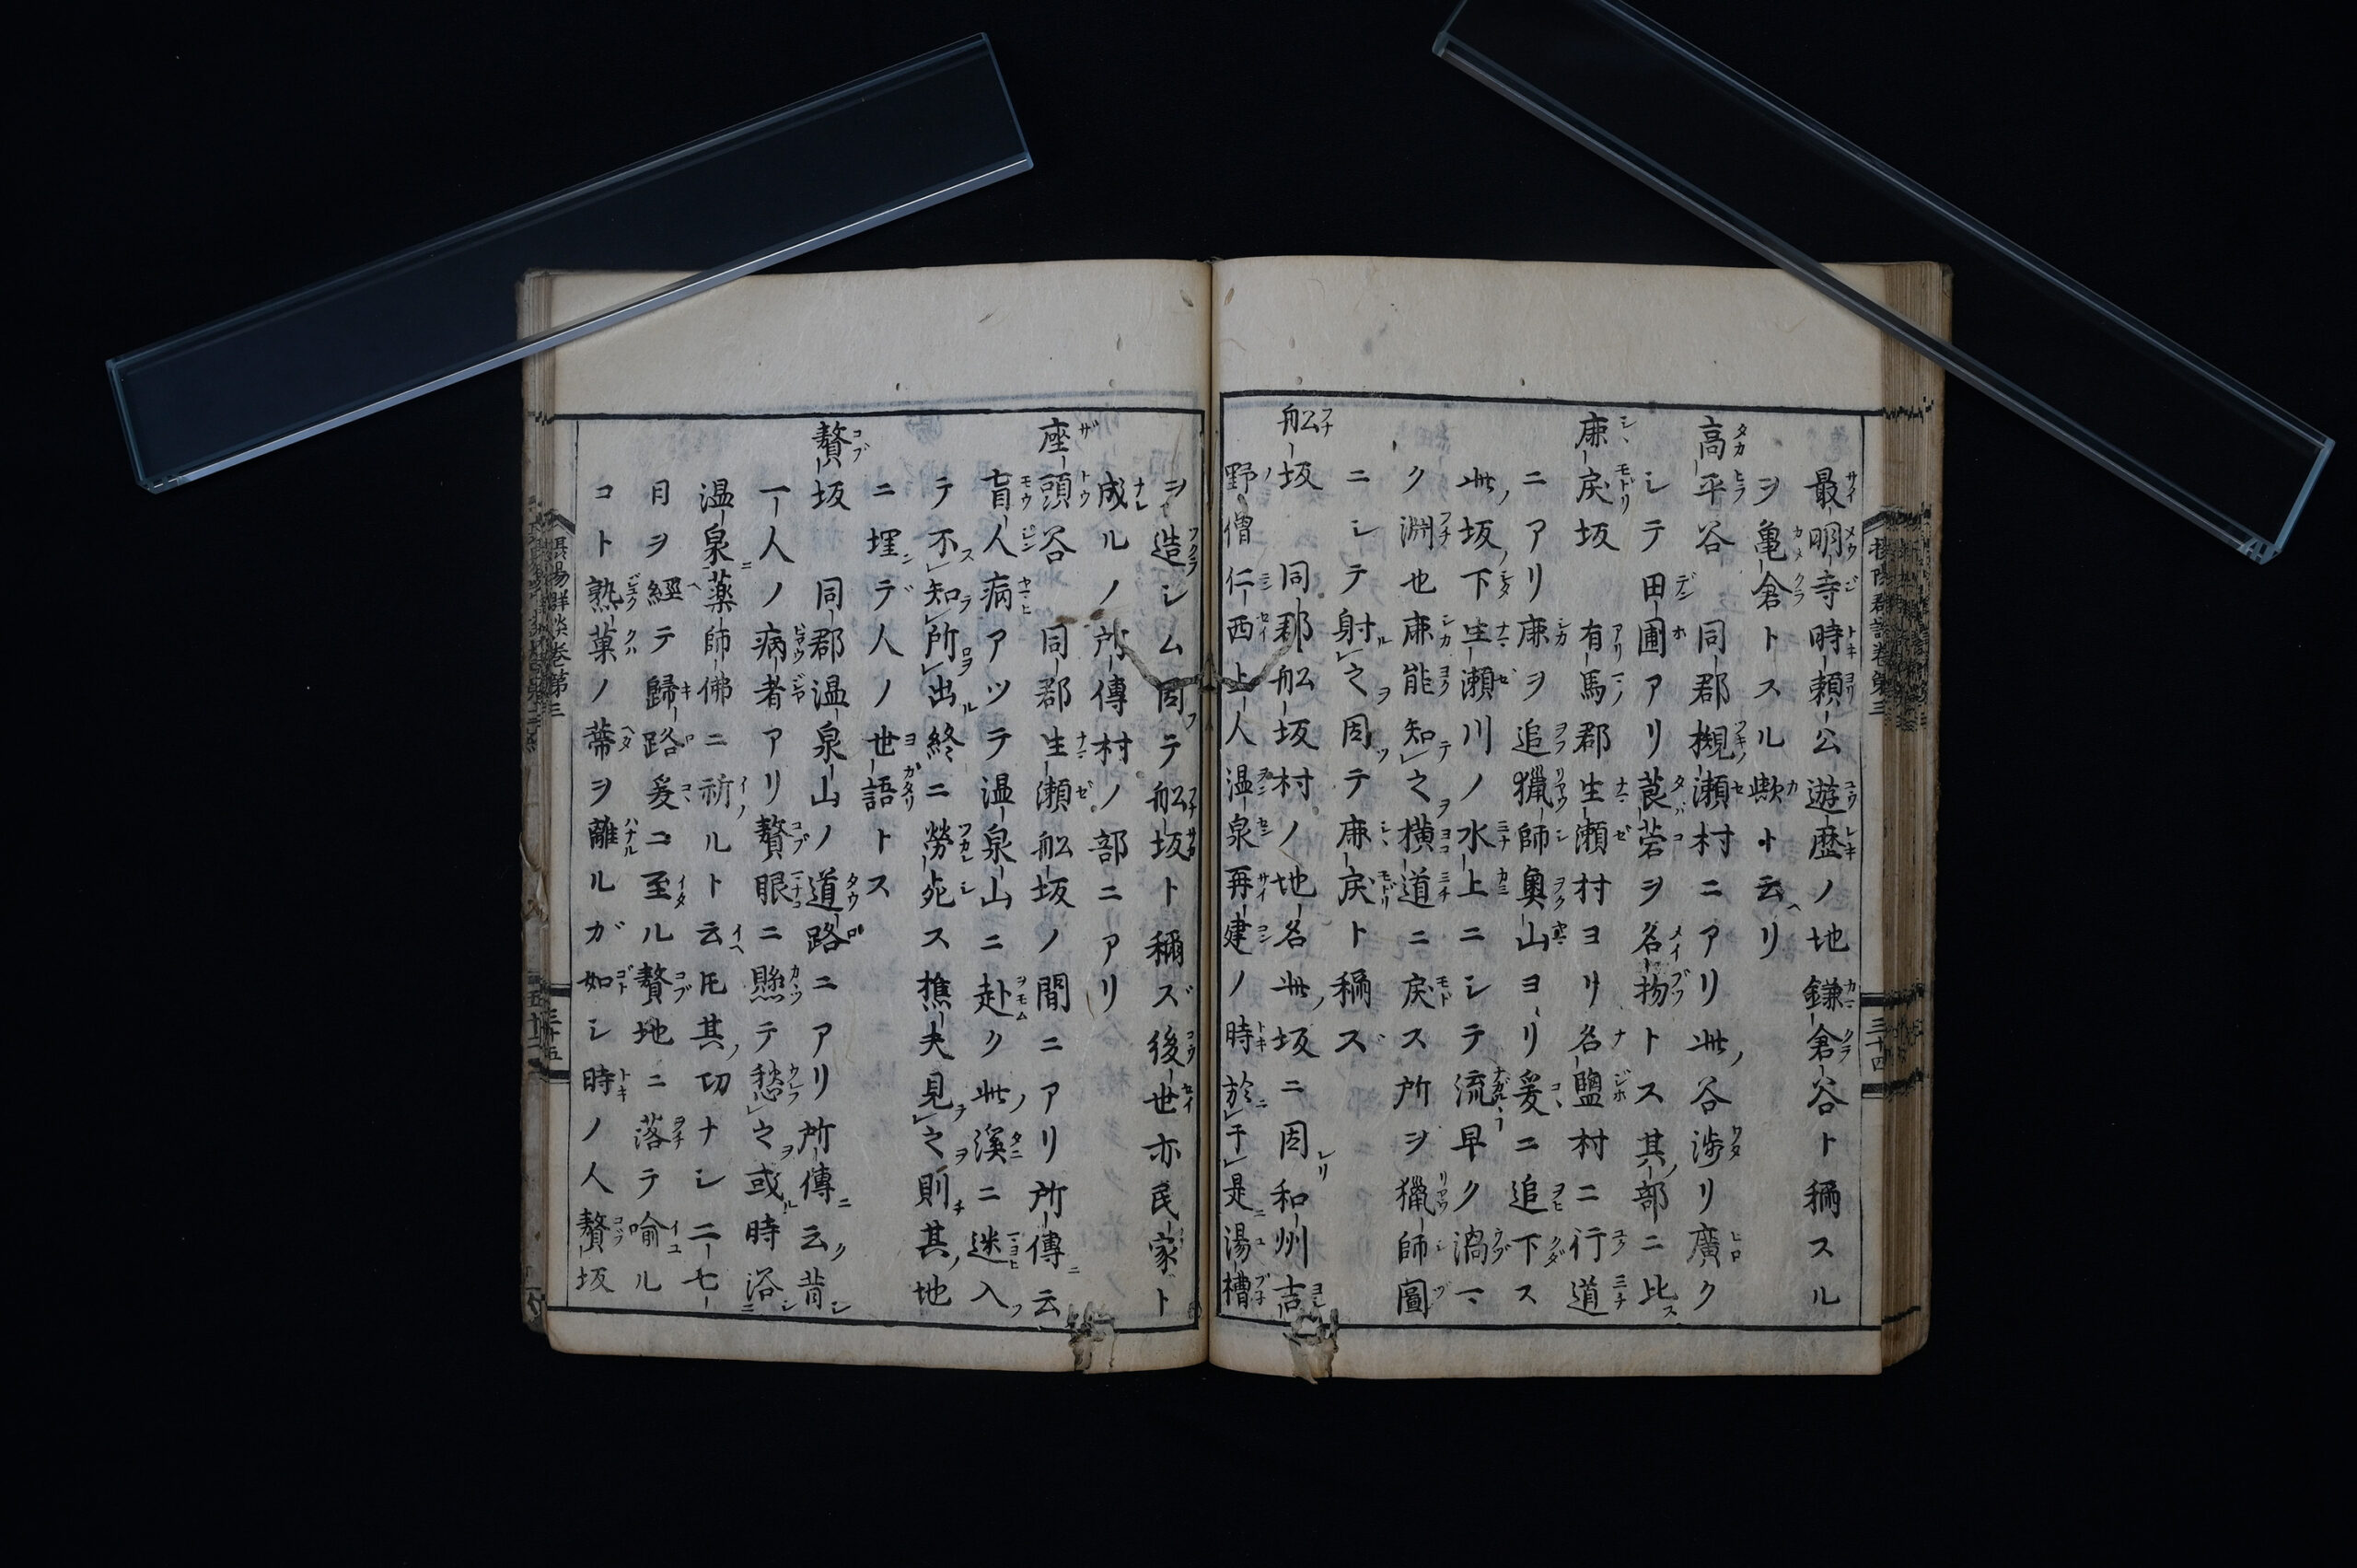 最明寺時頼公遊歴ノ地鎌倉谷ト稱スル
ヲ亀倉トスル歟ト云リ
高平谷 同郡槻瀬村ニアリ此谷渉リ廣ク
シテ田圃アリ莨菪ヲ名物トス其部ニ比
鹿戻坂 有馬郡生瀬村ヨリ名鹽村ニ行道
ニアリ鹿ヲ追獵師奥山ヨリ爰ニ追下ス
此坂下生瀬川ノ水上ニシテ流早ク渦マ
ク淵也鹿能知之横道ニ戻ス所ヲ獵師圖
ニシテ射之因テ鹿戻ト稱ス
舩坂 同郡舩坂村ノ地名此坂ニ因和州吉
野僧仁西上人温泉再建ノ時於于是湯槽
ヲ造シム因テ舩坂ト稱ズ後世亦民家ト
成ルノ所傳村ノ部ニアリ
座頭谷 同郡生瀬舩坂ノ間ニアリ所傳云
盲人病アツテ温泉山ニ赴ク此溪ニ迷入
テ不知所出終ニ勞死ス樵夫見之則其地
ニ埋デ人ノ世語トス
贅坂 同郡温泉山ノ道路ニアリ所傳云昔
一人ノ病者アリ贅眼ニ懸テ愁之或時浴
温泉薬師佛ニ祈ルト云ヘ𪜈其切ナシ二七
日ヲ經テ歸路爰ニ至ル贅地ニ落テ喻ル
コト熟菓ノ蒂ヲ離ルガ如シ時ノ人贅坂
摂陽群談巻第三
三十四
摂陽群談巻第三
三十五